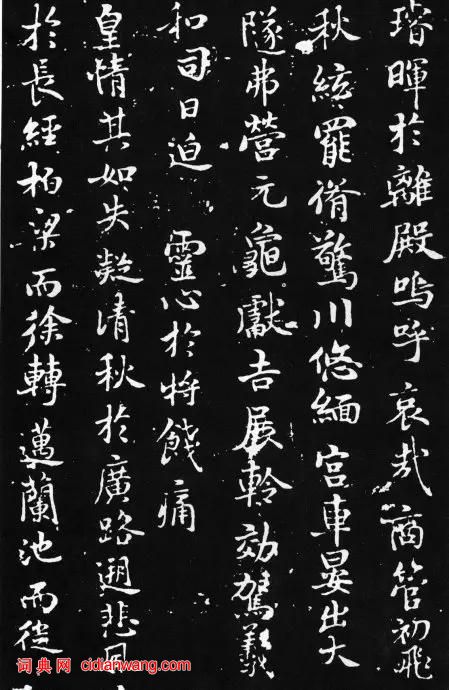 璿暉於離殿嗚呼哀哉商管初飛
秋紘罷脩驚川悠緬宮車晏出大
隧弗營元龜獻吉展軨効駕羲
和司日迫 靈心於將餞痛
皇情其如失凝清秋於廣路遡悲風
於長經栢梁而徐轉邁蘭池而從
词典网 cidianwang.com